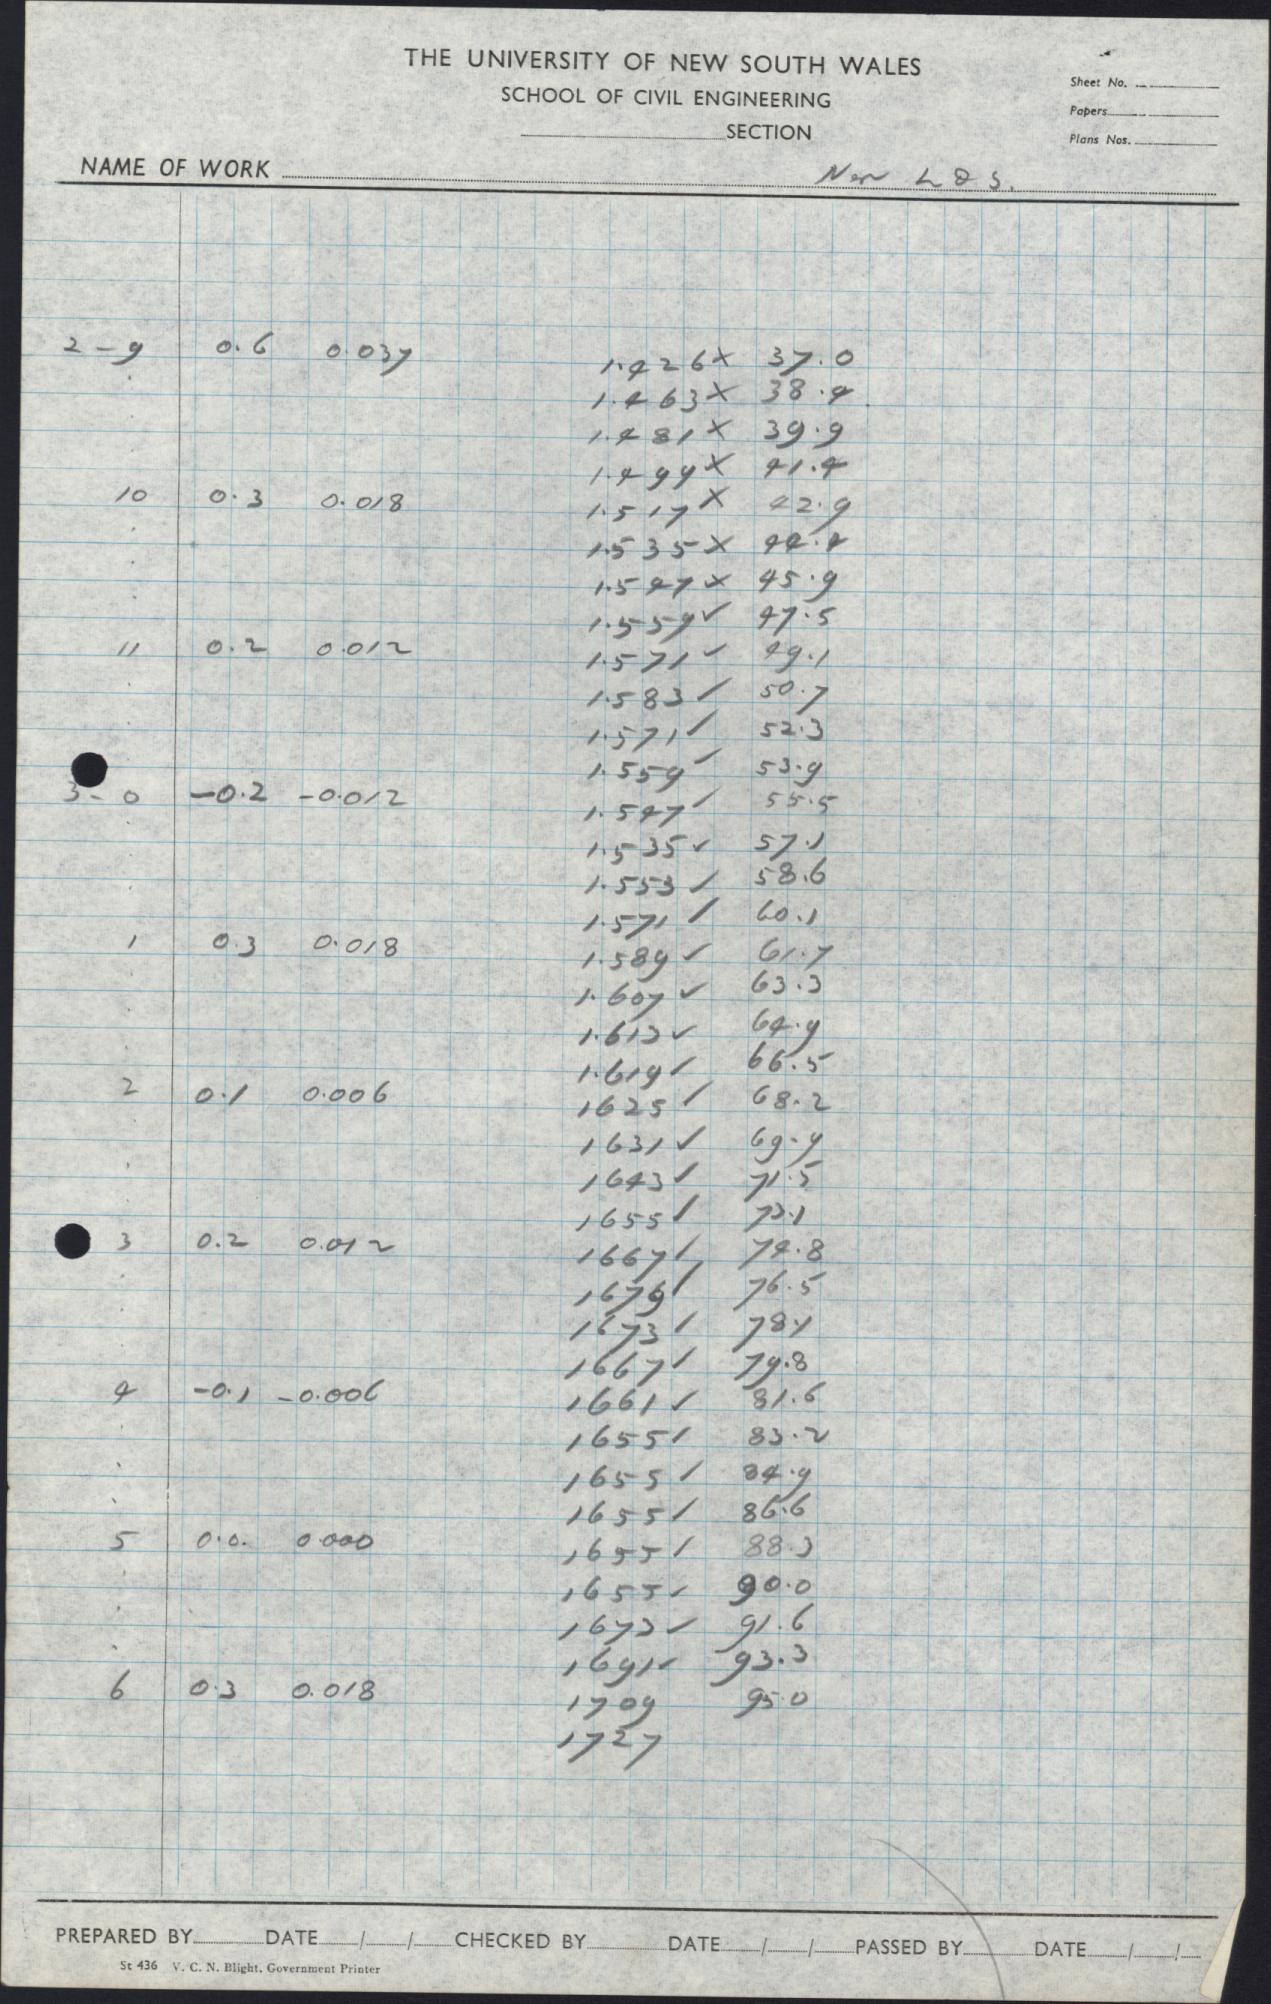 THE UNIVERSITY OF NEW SOUTH WALES
SCHOOL OF CIVIL ENGINEERING
SECTION
Sheet No.
Papers
Plans Nos.
NAME OF WORK New L&S.
2-9 0.6 0.037 1.426x 37.0
1.463x 38.4
1.481x 39.9
1.499x 41.4
10 0.3 0.018 1.517x 42.9
1.535x 44.4
1.547x 45.9
1.559✓ 47.5
11 0.2 0.012 1.571✓ 49.1
1.583✓ 50.7
1.571✓ 52.3
1.559✓ 53.9
3-0 -0.2 -0.012 1.547✓ 55.5
1.535✓ 57.1
1.553✓ 58.6
1.571✓ 60.1
1 0.3 0.018 1.589✓ 61.7
1.607✓ 63.3
1.613✓ 64.9
1.619✓ 66.5
2 0.1 0.006 1625✓ 68.2
1631✓ 69.9
1643✓ 71.5
1655✓ 73.1
3 0.2 0.012 1667✓ 74.8
1679✓ 76.5
1673✓ 78.1
1667✓ 79.8
4 -0.1 -0.006 1661✓ 81.6
1655✓ 83.2
1655✓ 84.9
1655✓ 86.6
5 0.0. 0.000 1655✓ 88.3
1655✓ 90.0
1673✓ 91.6
1691✓ 93.3
6 0.3 0.018 1709 95.0
1727
PREPARED BY DATE / / CHECKED BY DATE / / PASSED BY DATE / /
St 436 V. C. N. Blight, Government Printer